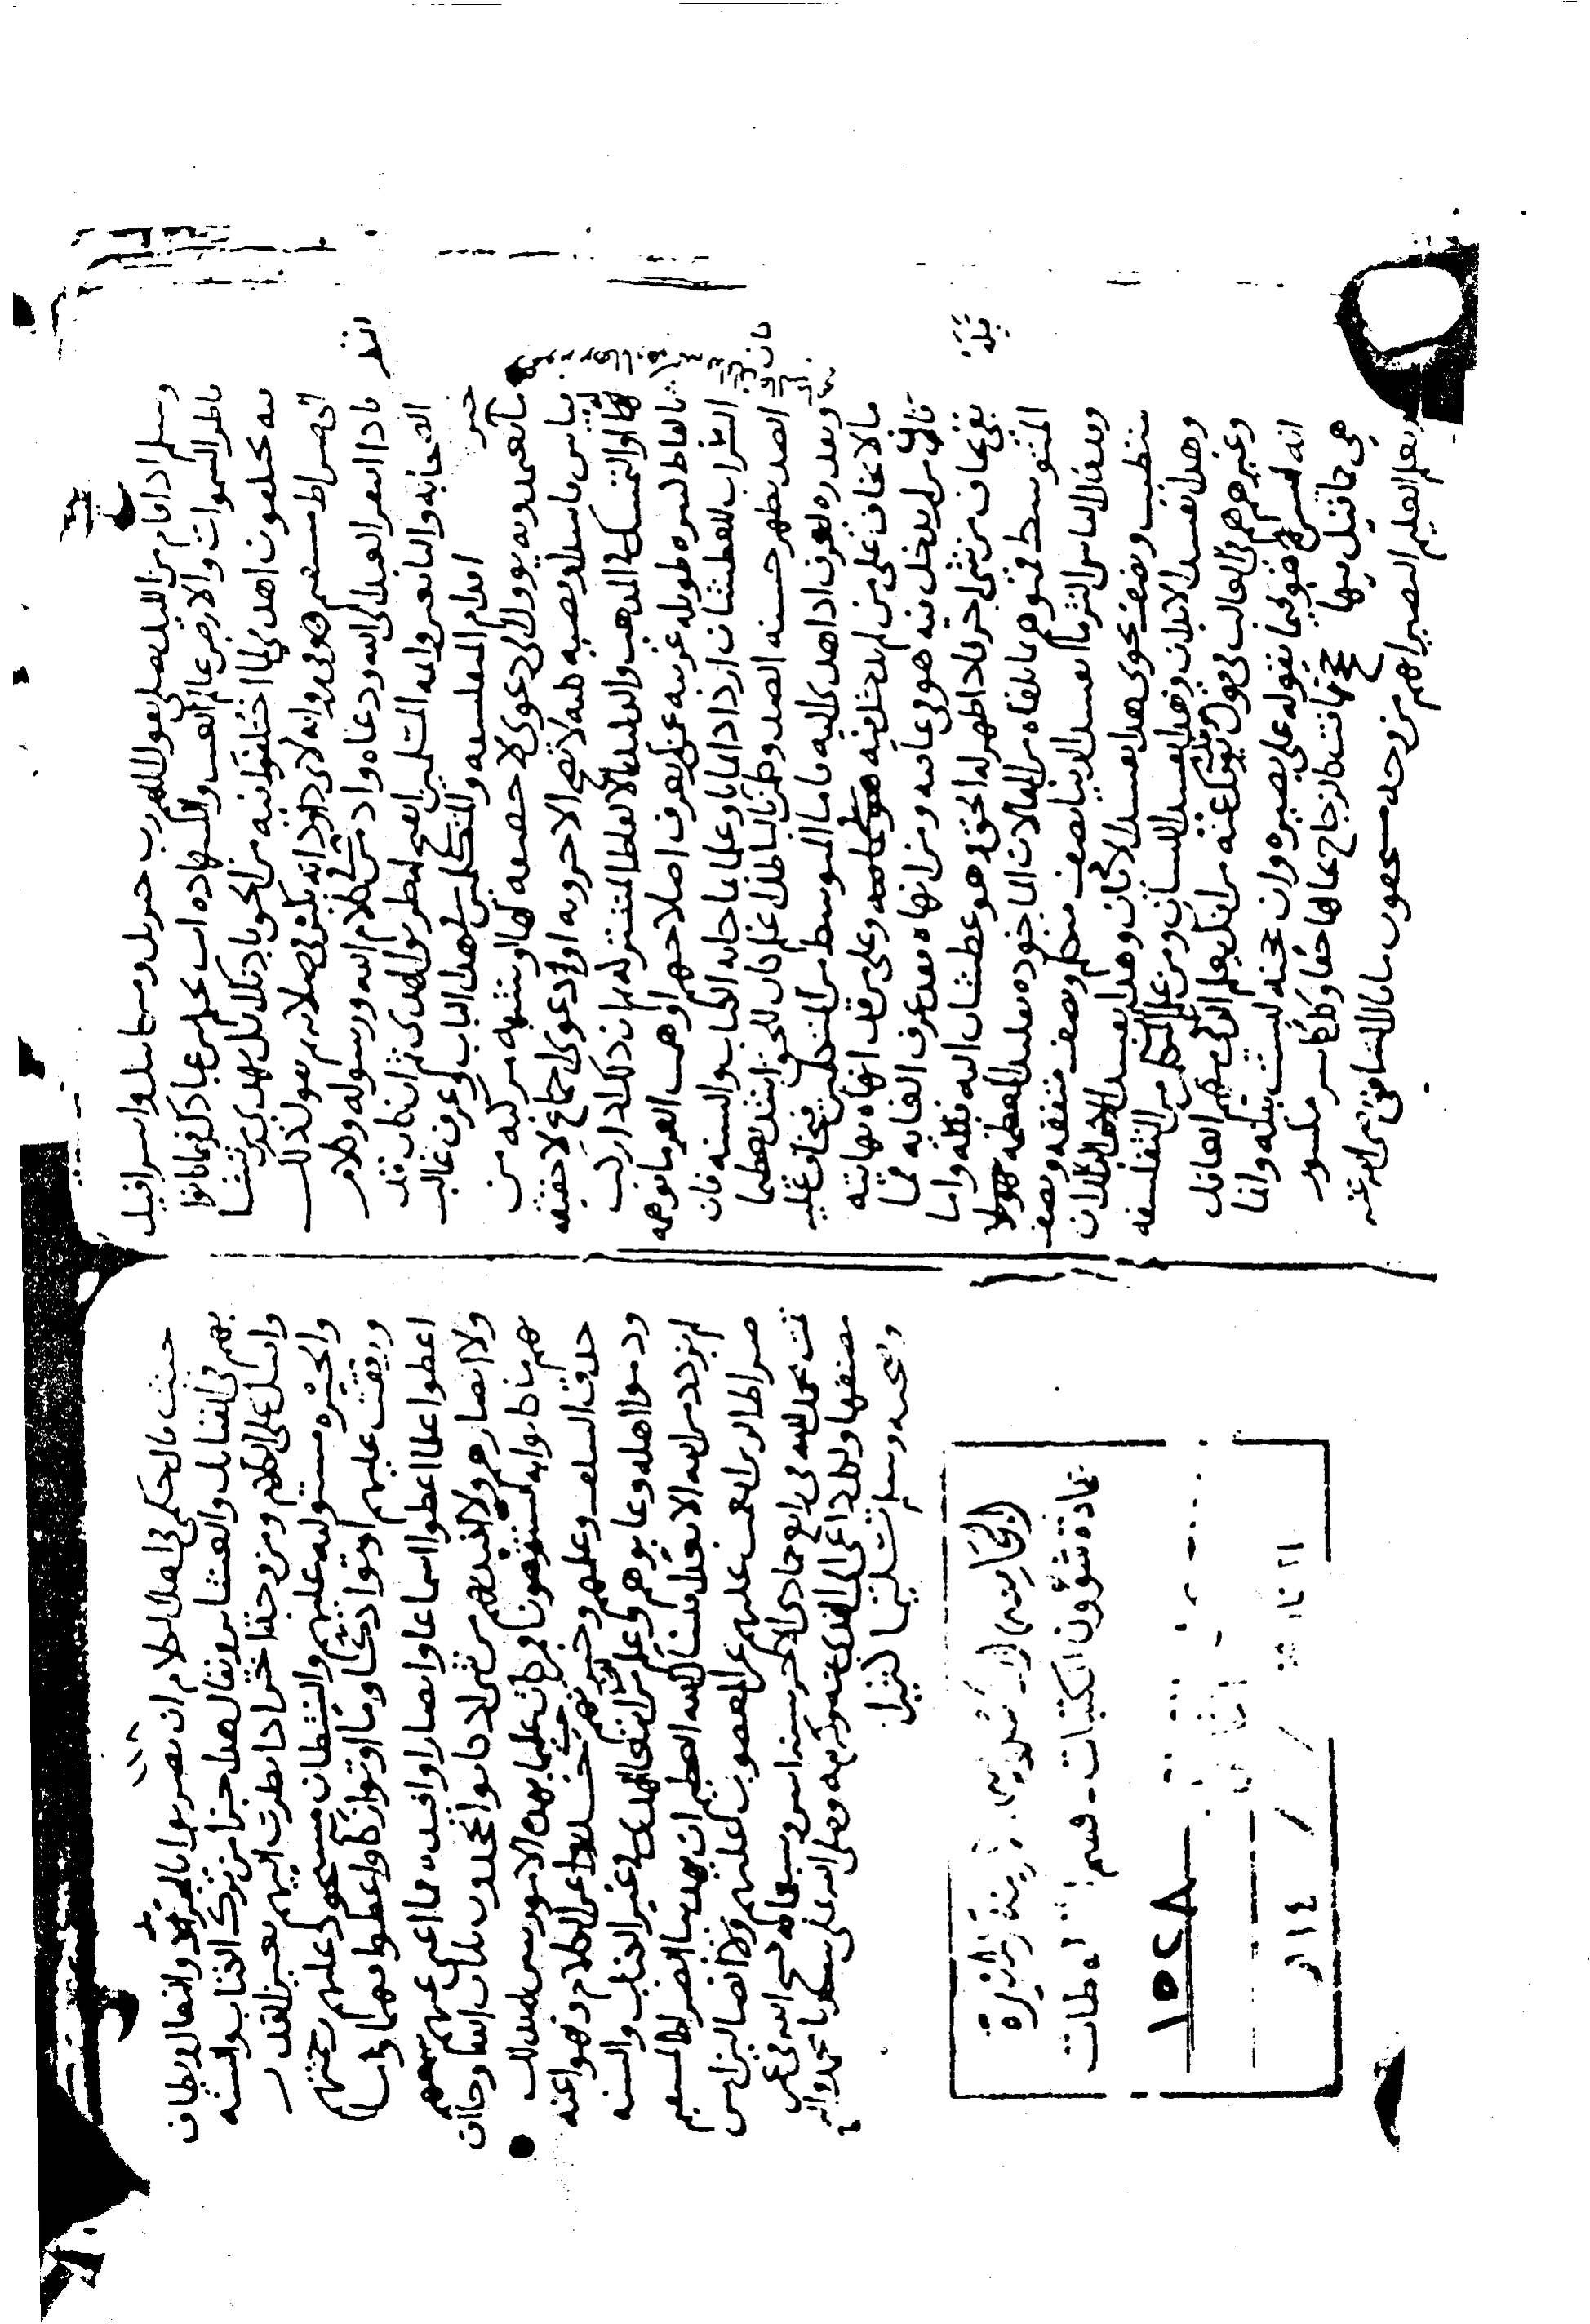 وسلم اذا قام من الليل يصلي يقول اللهم رب جبريل وميكائيل واسرافيل
فاطر السموات والارض عالم الغيب والشهاده انت تحكم بين عبادك فيما كانوا
فيه يختلفون اهدني لما اختلفوا فيه من الحق باذنك انك تهدي من تشا
الى صراط مستقيم وفي روايه لابي داود انه يكبر في صلاته ثم يقول ذلك
فاذا افتقر العبد الى الله ودعاه وادمن في كلام الله ورسوله وكلام
الصحابه والتابعين وايمه المسلمين انفتح له طريق الهدى ثم ان كان قد
خبر اقدام المتفلسفه والمتكلمين في هذا الباب وعرف غالب
ما يعتمدونه يوول الى دعوى لا حقيقه لها او شبهه مركبه من
قياس فاسد او قضيه كليه لا تصح الا جزويه او دعوى اجماع لا حقيقه
لها او التمسك في المذهب والدليل بالالفاظ المشتركه ثم ان ذلك اذا ركب
بالفاظ كثيره طويله غريبه عمن لم يعرف اصطلاحهم اوهمت الغر ما يوهمه
السراب للعطشان ازداد ايمانا وعلما بما جا به الكتاب والسنه فان
الضد يظهر حسنه الضد وكل من كان بالباطل اعلم كان للحق اشد تعظيما
وبقدره اعرف اذا هدي اليه فاما المتوسط من المتكلمين فيخاف عليه
ما لا يخاف على من لم يدخل فيه وعلى من قد انهاه نهايته
فان من لم يدخل فيه هو في عافيه ومن انهاه فقد عرف الغايه فما
بقي يخاف من شي اخر فاذا ظهر له الحق وهو عطشان اليه قبله واما
المتوسط فمتوهم بما تلقاه من المقالات الماخوذه تقليدا لمعظمه هولا
وقد قال الناس اكثر ما يفسد الدنيا نصف متكلم ونصف متفقه ونصف
متطبب ونصف نحوي هذا يفسد الاديان وهذا يفسد البلدان
وهذا يفسد الابدان وهذا يفسد اللسان ومن علم المتكلمين المتفلسفه
وغيرهم هم في الغالب في قول مختلف يوفك عنه من افك يعلم الذكي منهم العاقل
انه ليس هو فيما يقوله على بصيره وان حجته ليست ببينه وانما
هي كما قيل فيها حجج تهافت كالزجاج تخالها حقا وكل كاسر مكسور
ويعلم العليم البصير انهم من وجه مستحقون ما قاله الشافعي رضي الله عنه
حيث قال حكمي في اهل الكلام ان يضربوا بالجريد والنعال ويطاف
بهم في القبائل والعشاير ويقال هذا جزا من ترك الكتاب والسنه
واقبل على الكلام ومن وجه اخر اذا نظرت اليهم بعين القدر
والحيره مستوليه عليهم والشيطان مستحوذ عليهم رحمتهم
ورفقت عليهم اوتوا ذكا وما اوتوا زكا واعطوا فهوما وما
اعطوا علوما اعطوا اسماعا وابصارا وافيده فما اغنى عنهم سمعهم
ولا ابصارهم ولا افيدتهم من شي اذ كانوا يجحدون بايات الله وحاق
بهم ما كانوا به يستهزون ومن كان عليما بهذه الامور تبين له بذلك
حذق السلف وعلمهم وخبرتهم حيث حذروا عن الكلام ونهوا عنه
وذموا اهله وعابوهم وعلم ان من ابتغى الهدى في غير الكتاب والسنه
لم يزدد من الله الا بعدا فنسال الله العظيم ان يهدينا الصراط المستقيم
صراط الذين انعم عليهم غير المغضوب عليهم ولا الضالين امين
تمت بحمد الله في رابع جمادى الاخر سنه
مصنفها
وصحبه وسلم تسليما كثيرا
عمادة شؤون المكتبات - قسم المخطوطات
١٥٢٨